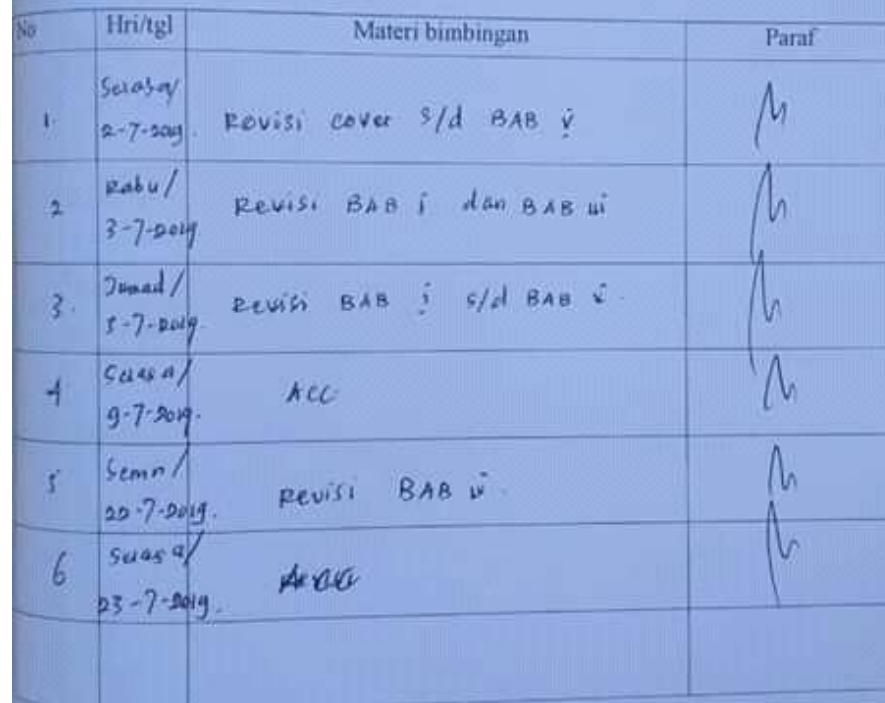 No Hri/tgl Materi bimbingan Paraf
1. Selasa/
2-7-2019. Revisi cover s/d BAB v
2 Rabu/
3-7-2019 Revisi BAB i dan BAB iii
3. Jumad/
5-7-2019. Revisi BAB i s/d BAB v.
4 Selasa/
9-7-2019. ACC
5 Senin/
22-7-2019. Revisi BAB iv.
6 Selasa/
23-7-2019.